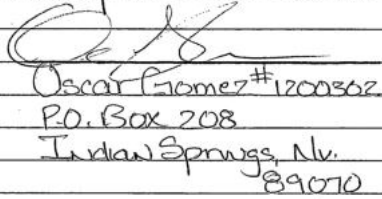 Oscar Gomez #1200302
P.O. Box 208
Indian Springs, Nv.
89070